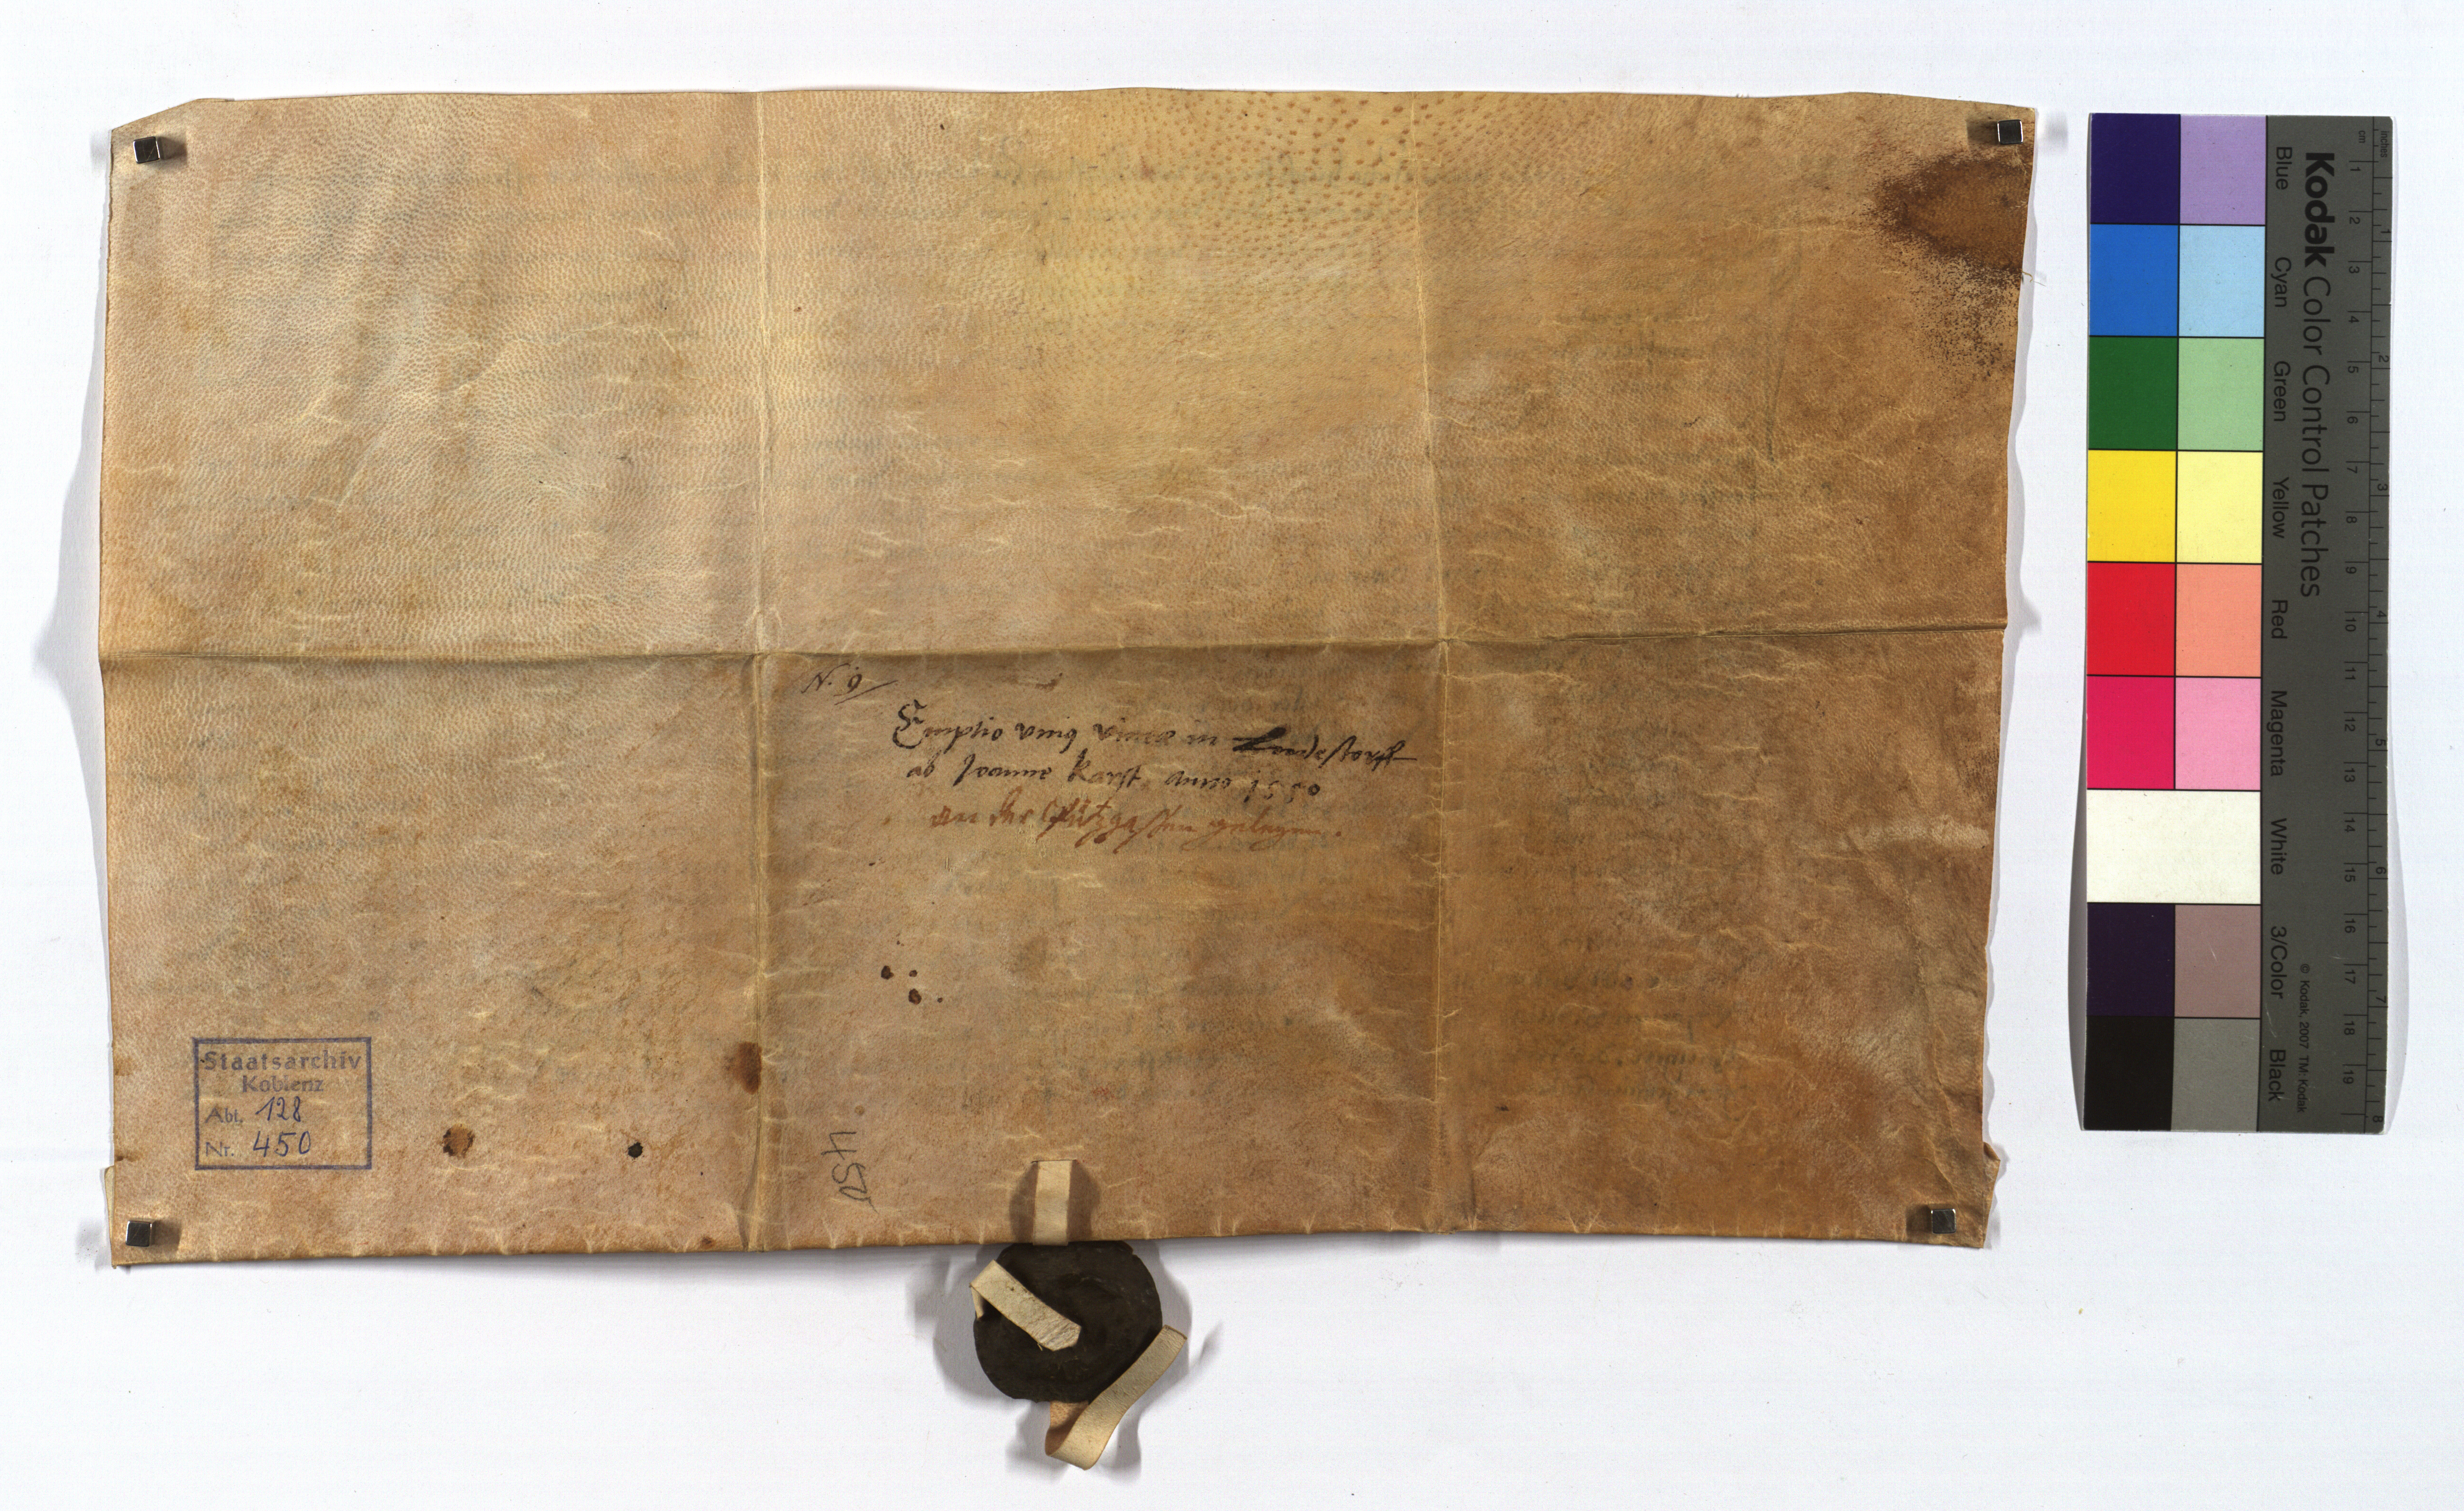 N. 9
Emptio unius vineæ in Leudestorff
ab Joanne Karst anno 1550
an der gelegen.
Staatsarchiv
Koblenz
Abt. 128
Nr. 450
450
Kodak Color Control Patches
Blue Cyan Green Yellow Red Magenta White 3/Color Black
© Kodak, 2007 TM: Kodak
cm 1 2 3 4 5 6 7 8 9 10 11 12 13 14 15 16 17 18 19
inches 1 2 3 4 5 6 7 8